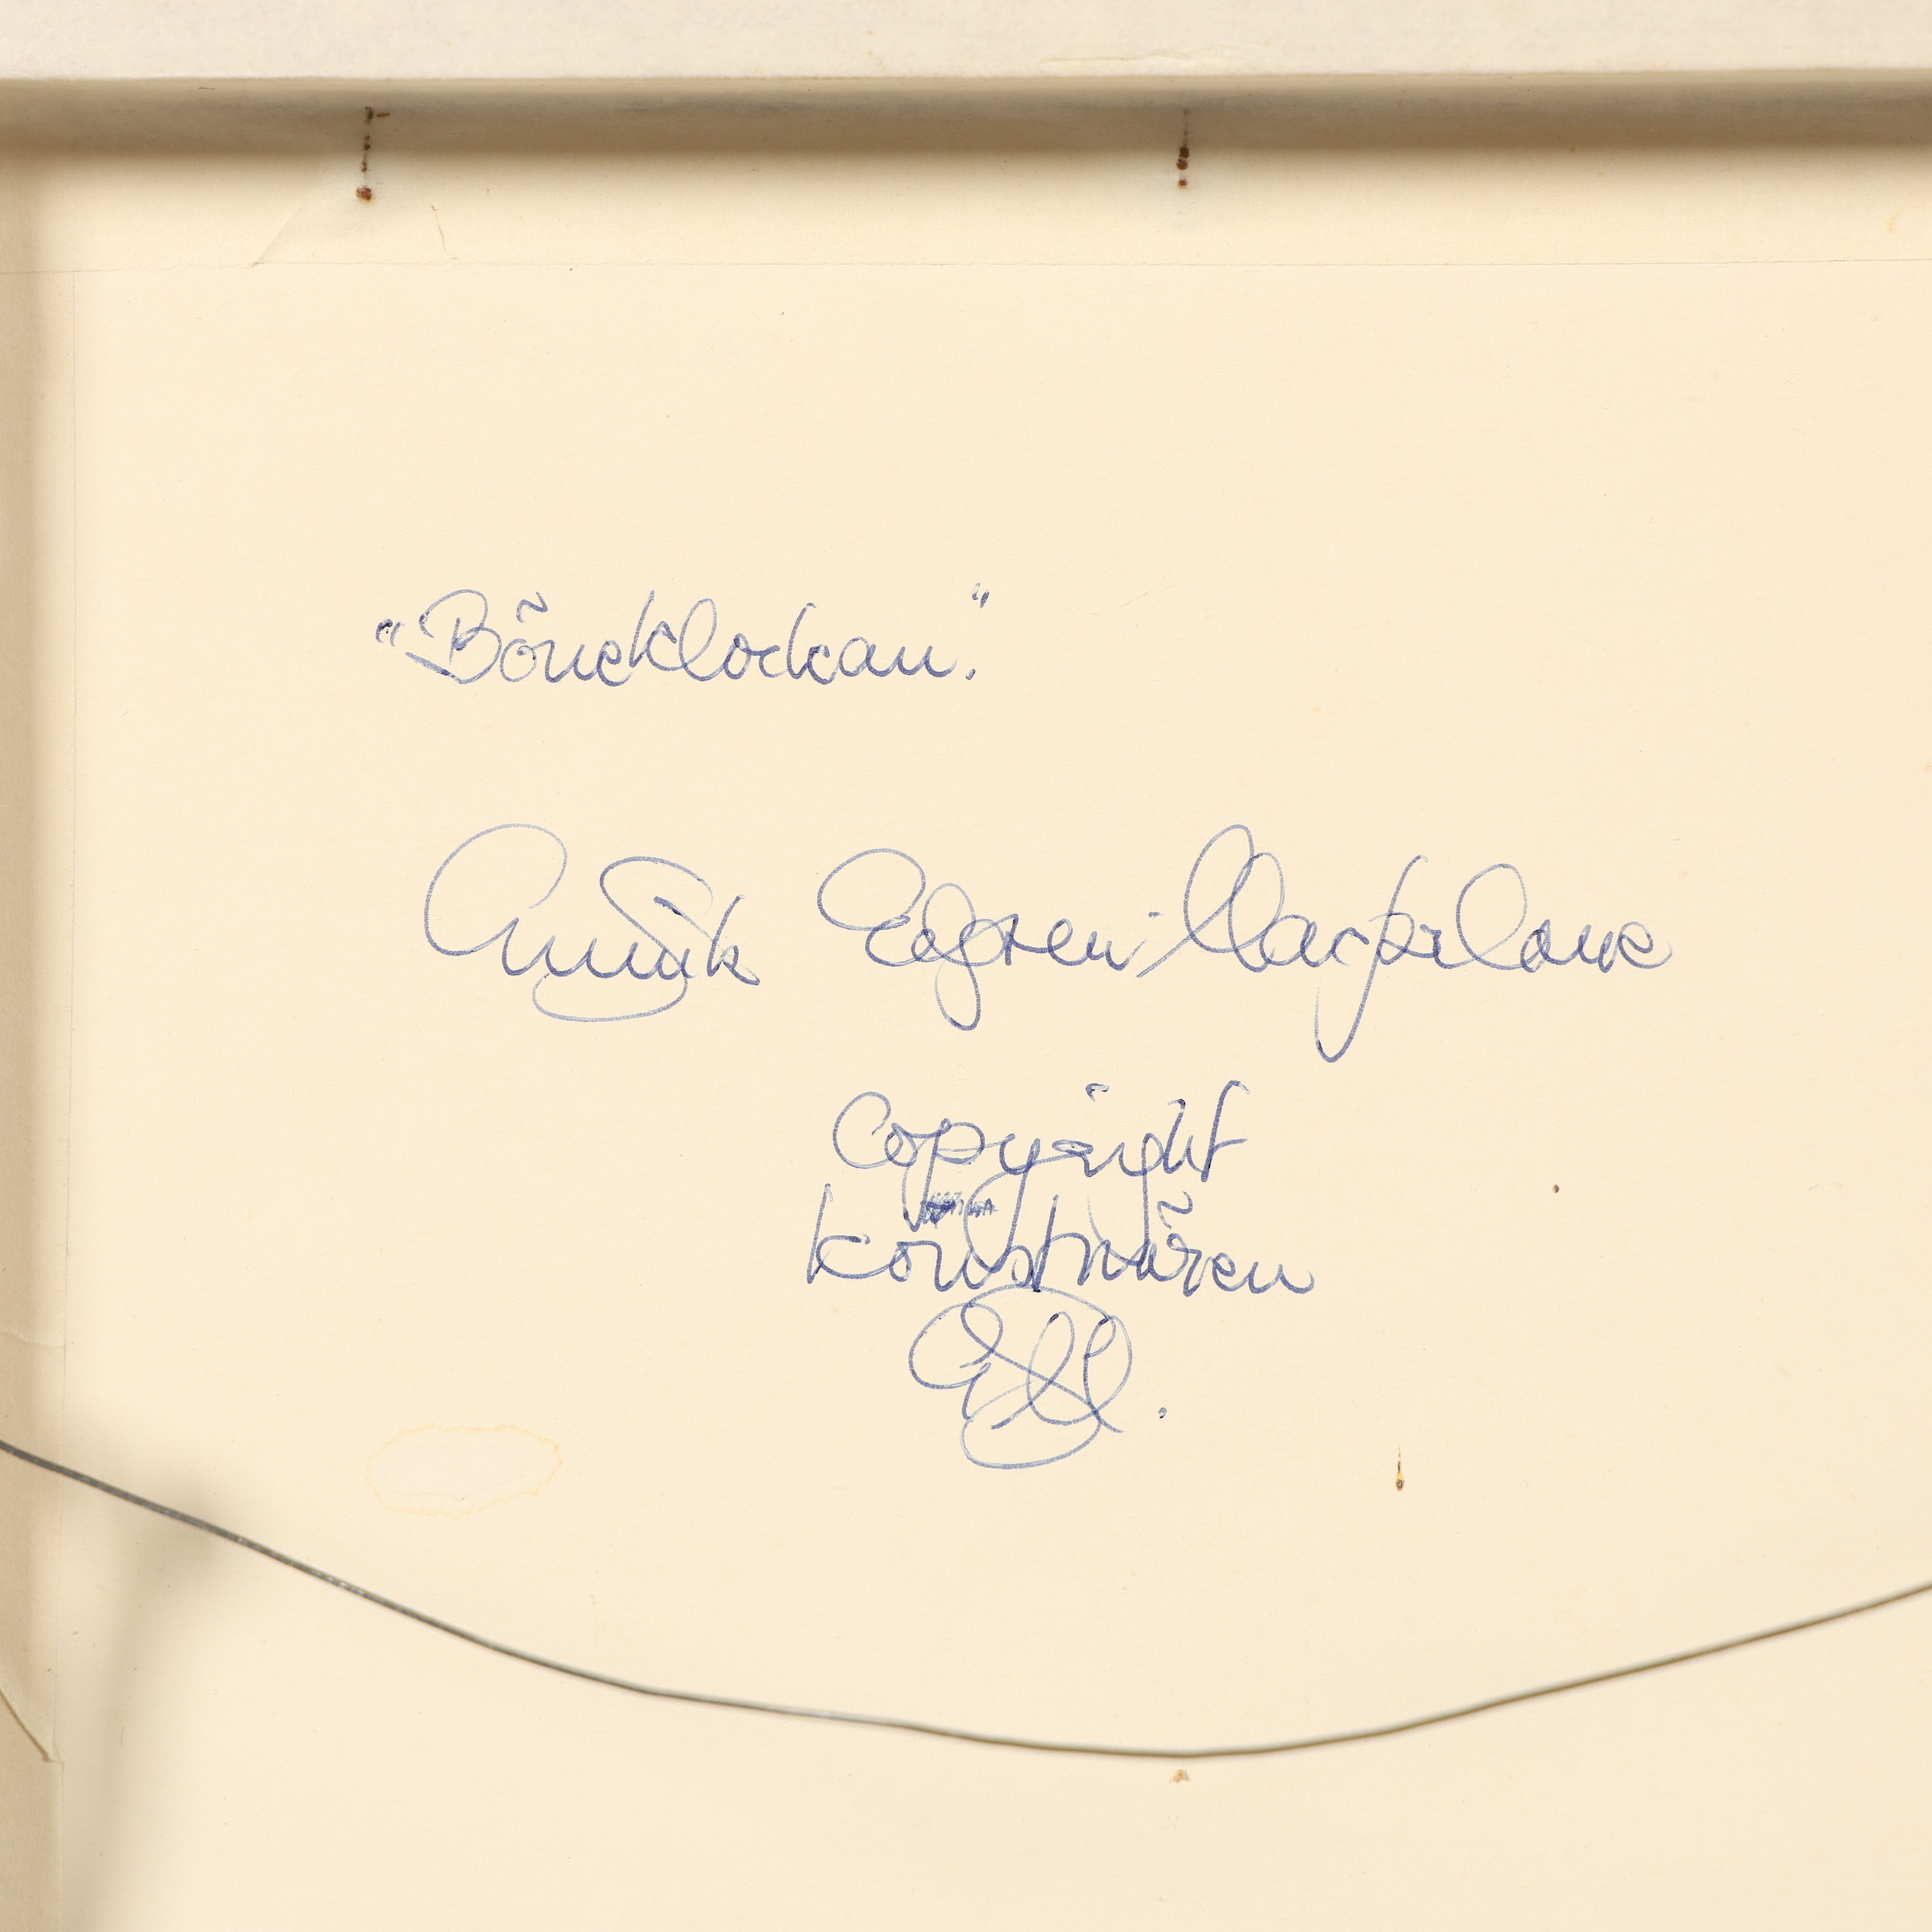 "Böneklockan."
Annik Edgren-Macfarlane
Copyright
konstnären